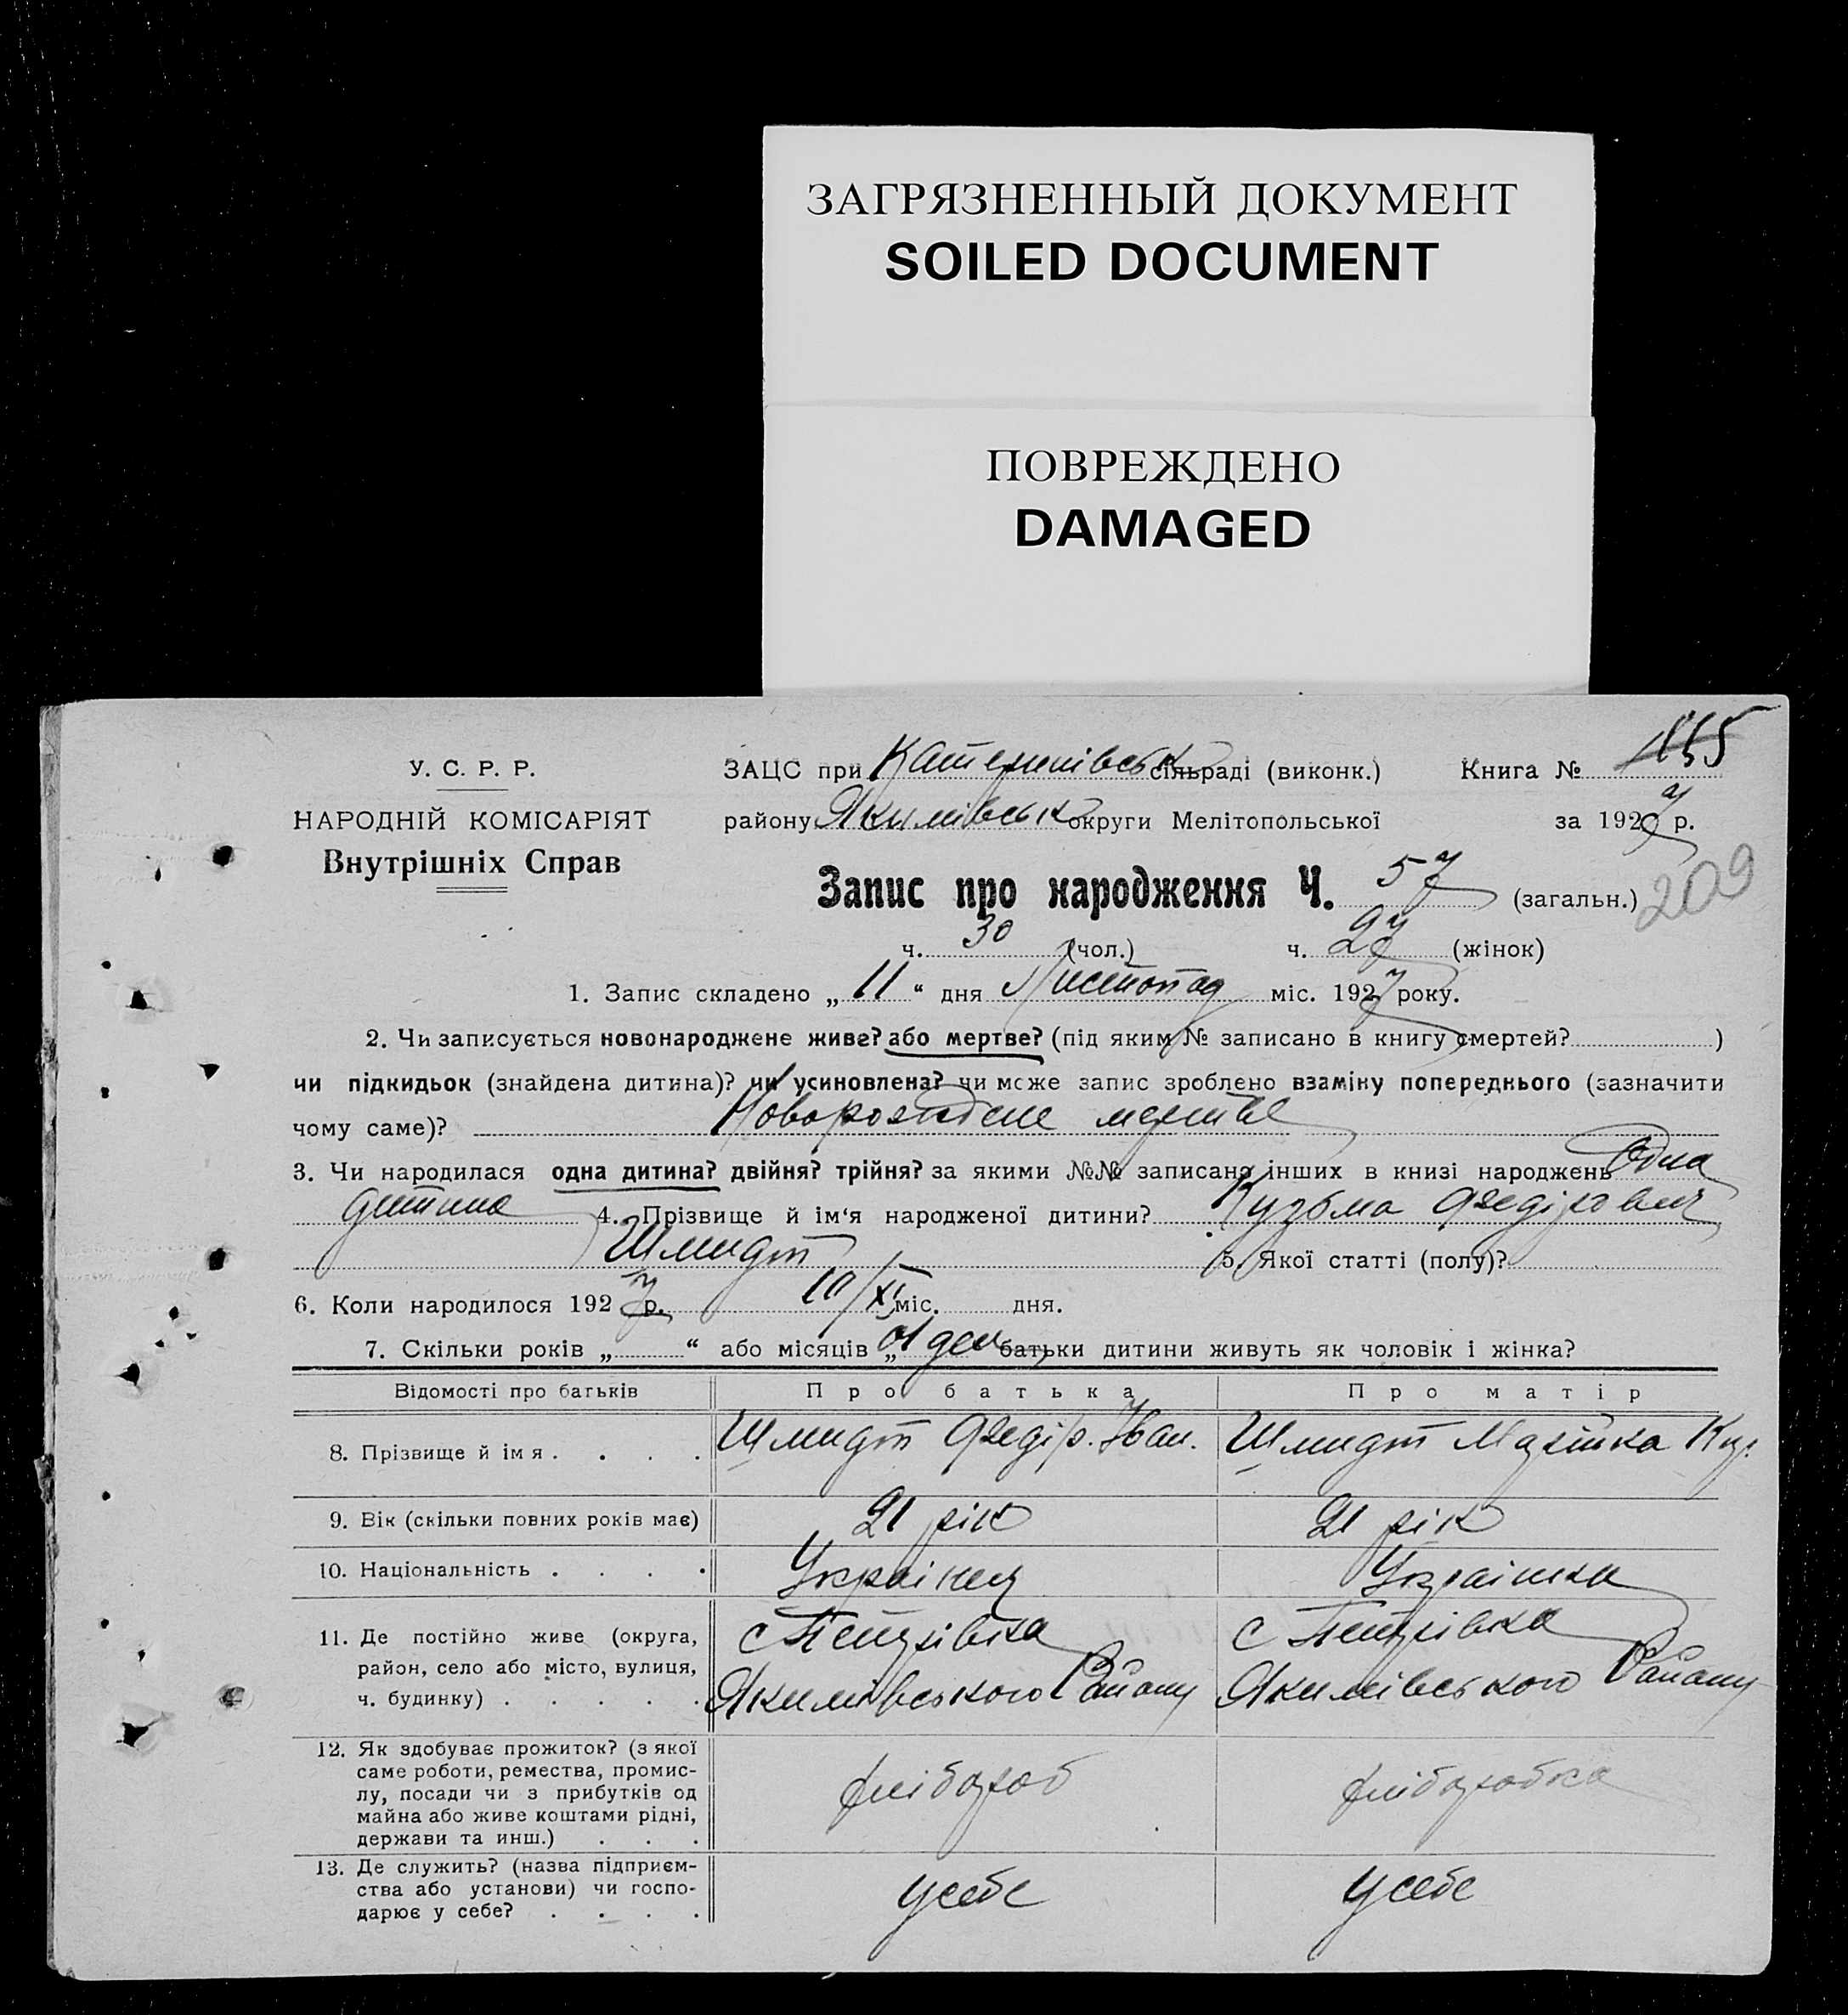 ЗАГРЯЗНЕННЫЙ ДОКУМЕНТ
SOILED DOCUMENT
ПОВРЕЖДЕНО
DAMAGED
У. С. Р. Р.
НАРОДНІЙ КОМІСАРІЯТ
Внутрішніх Справ
ЗАЦС при Катеринівськ сільраді (виконк.) Книга №
району Якимівськ округи Мелітопольської за 1927 р.
Запис про народження Ч. 57 (загальн.) 209
ч. 30 (чол.) ч. 27 (жінок)
1. Запис складено „ 11 “ дня Листопад міс. 1927 року.
2. Чи записується новонароджене живе? або мертве? (під яким № записано в книгу смертей? )
чи підкидьок (знайдена дитина)? чи усиновлена? чи може запис зроблено взаміну попереднього (зазначити
чому саме)? Новорождене мертве
3. Чи народилася одна дитина? двійня? трійня? за якими №№ записано інших в книзі народжень Одна
дитина 4. Прізвище й ім‘я народженої дитини? Кузьма Федірович
Шмидт 5. Якої статті (полу)?
6. Коли народилося 1927 р. 10/XI міс. дня.
7. Скільки років „ “ або місяців „ батьки дитини живуть як чоловік і жінка?
Відомості про батьків Про батька Про матір
8. Прізвище й імя . . . . Шмидт Федір. Іван. Шмидт Куз.
9. Вік (скільки повних років має) 21 рік 21 рік
10. Національність . . . . Українец Українка
11. Де постійно живе (округа, с Петрівка с Петрівка
район, село або місто, вулиця, Якимівського Району Якимівського Району
ч. будинку) . . . . .
12. Як здобуває прожиток? (з якої
саме роботи, ремества, промис-
лу, посади чи з прибутків од хлібороб хліборобка
майна або живе коштами рідні,
держави та инш.) . . .
13. Де служить? (назва підприєм-
ства або установи) чи госпо- усебе усебе
дарює у себе? . . . .